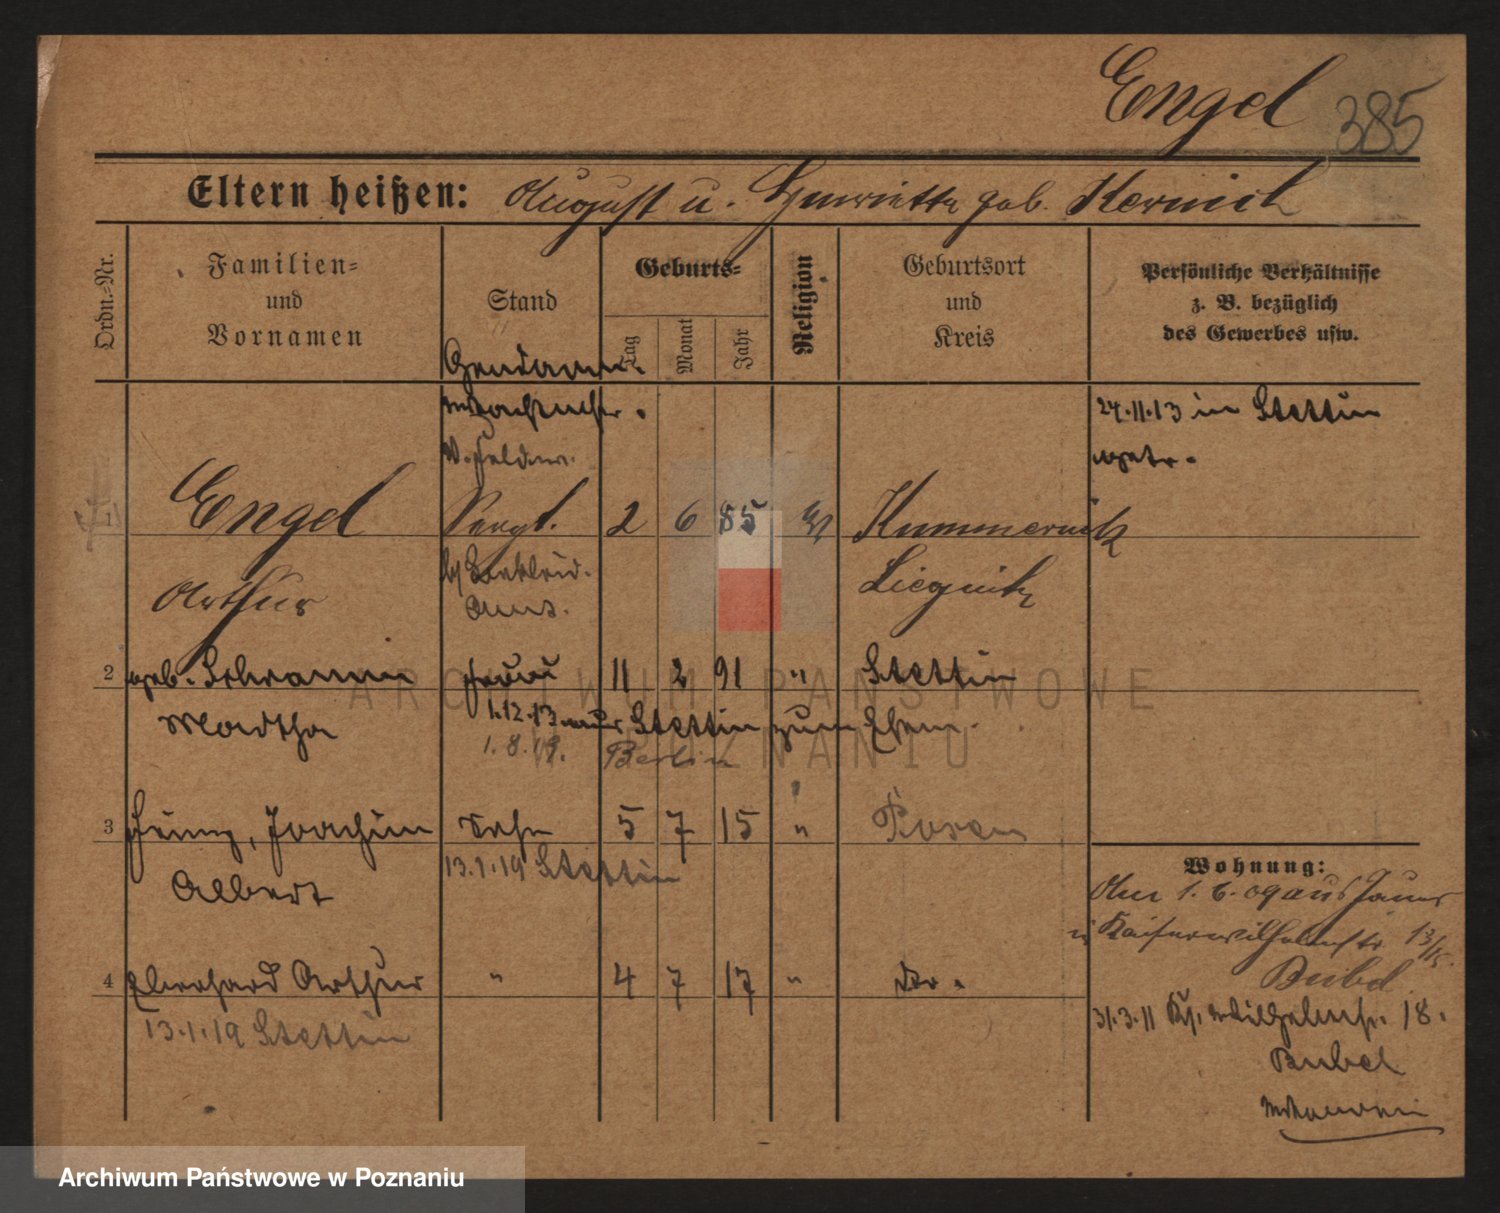 Engel 385
Eltern heißen: August u. Henriette geb. Kernich
Ordn.-Nr.
Familien-
und
Vornamen
Stand
Geburts-
Tag
Monat
Jahr
Religion
Geburtsort
und
Kreis
Persönliche Verhältnisse
z. B. bezüglich
des Gewerbes usw.
Gendarm.
24.11.13 in Stettin
getr.
V. Feldw.
1 Engel Sergt. 2 6 85 Kummernick
Arthur
b/ Bekleid.
Amt.
Liegnitz
2 geb. Schramm Frau 11 2 91 " Stettin
Martha 1.12.13. Stettin zum Ehem.
1.8.19. Berlin
3 Heinz, Joachim Sohn 5 7 15 " Posen
Albert
13.1.19 Stettin
4 Eberhard Arthur " 4 7 17 "
13.1.19 Stettin
Wohnung:
1.6.09 aus Jauer
Kaiserwilhelmstr. 13/15.
Bubel
31.3.11 Ks. Wilhelmstr. 18.
Bubel
ARCHIWUM PAŃSTWOWE
W POZNANIU
Archiwum Państwowe w Poznaniu